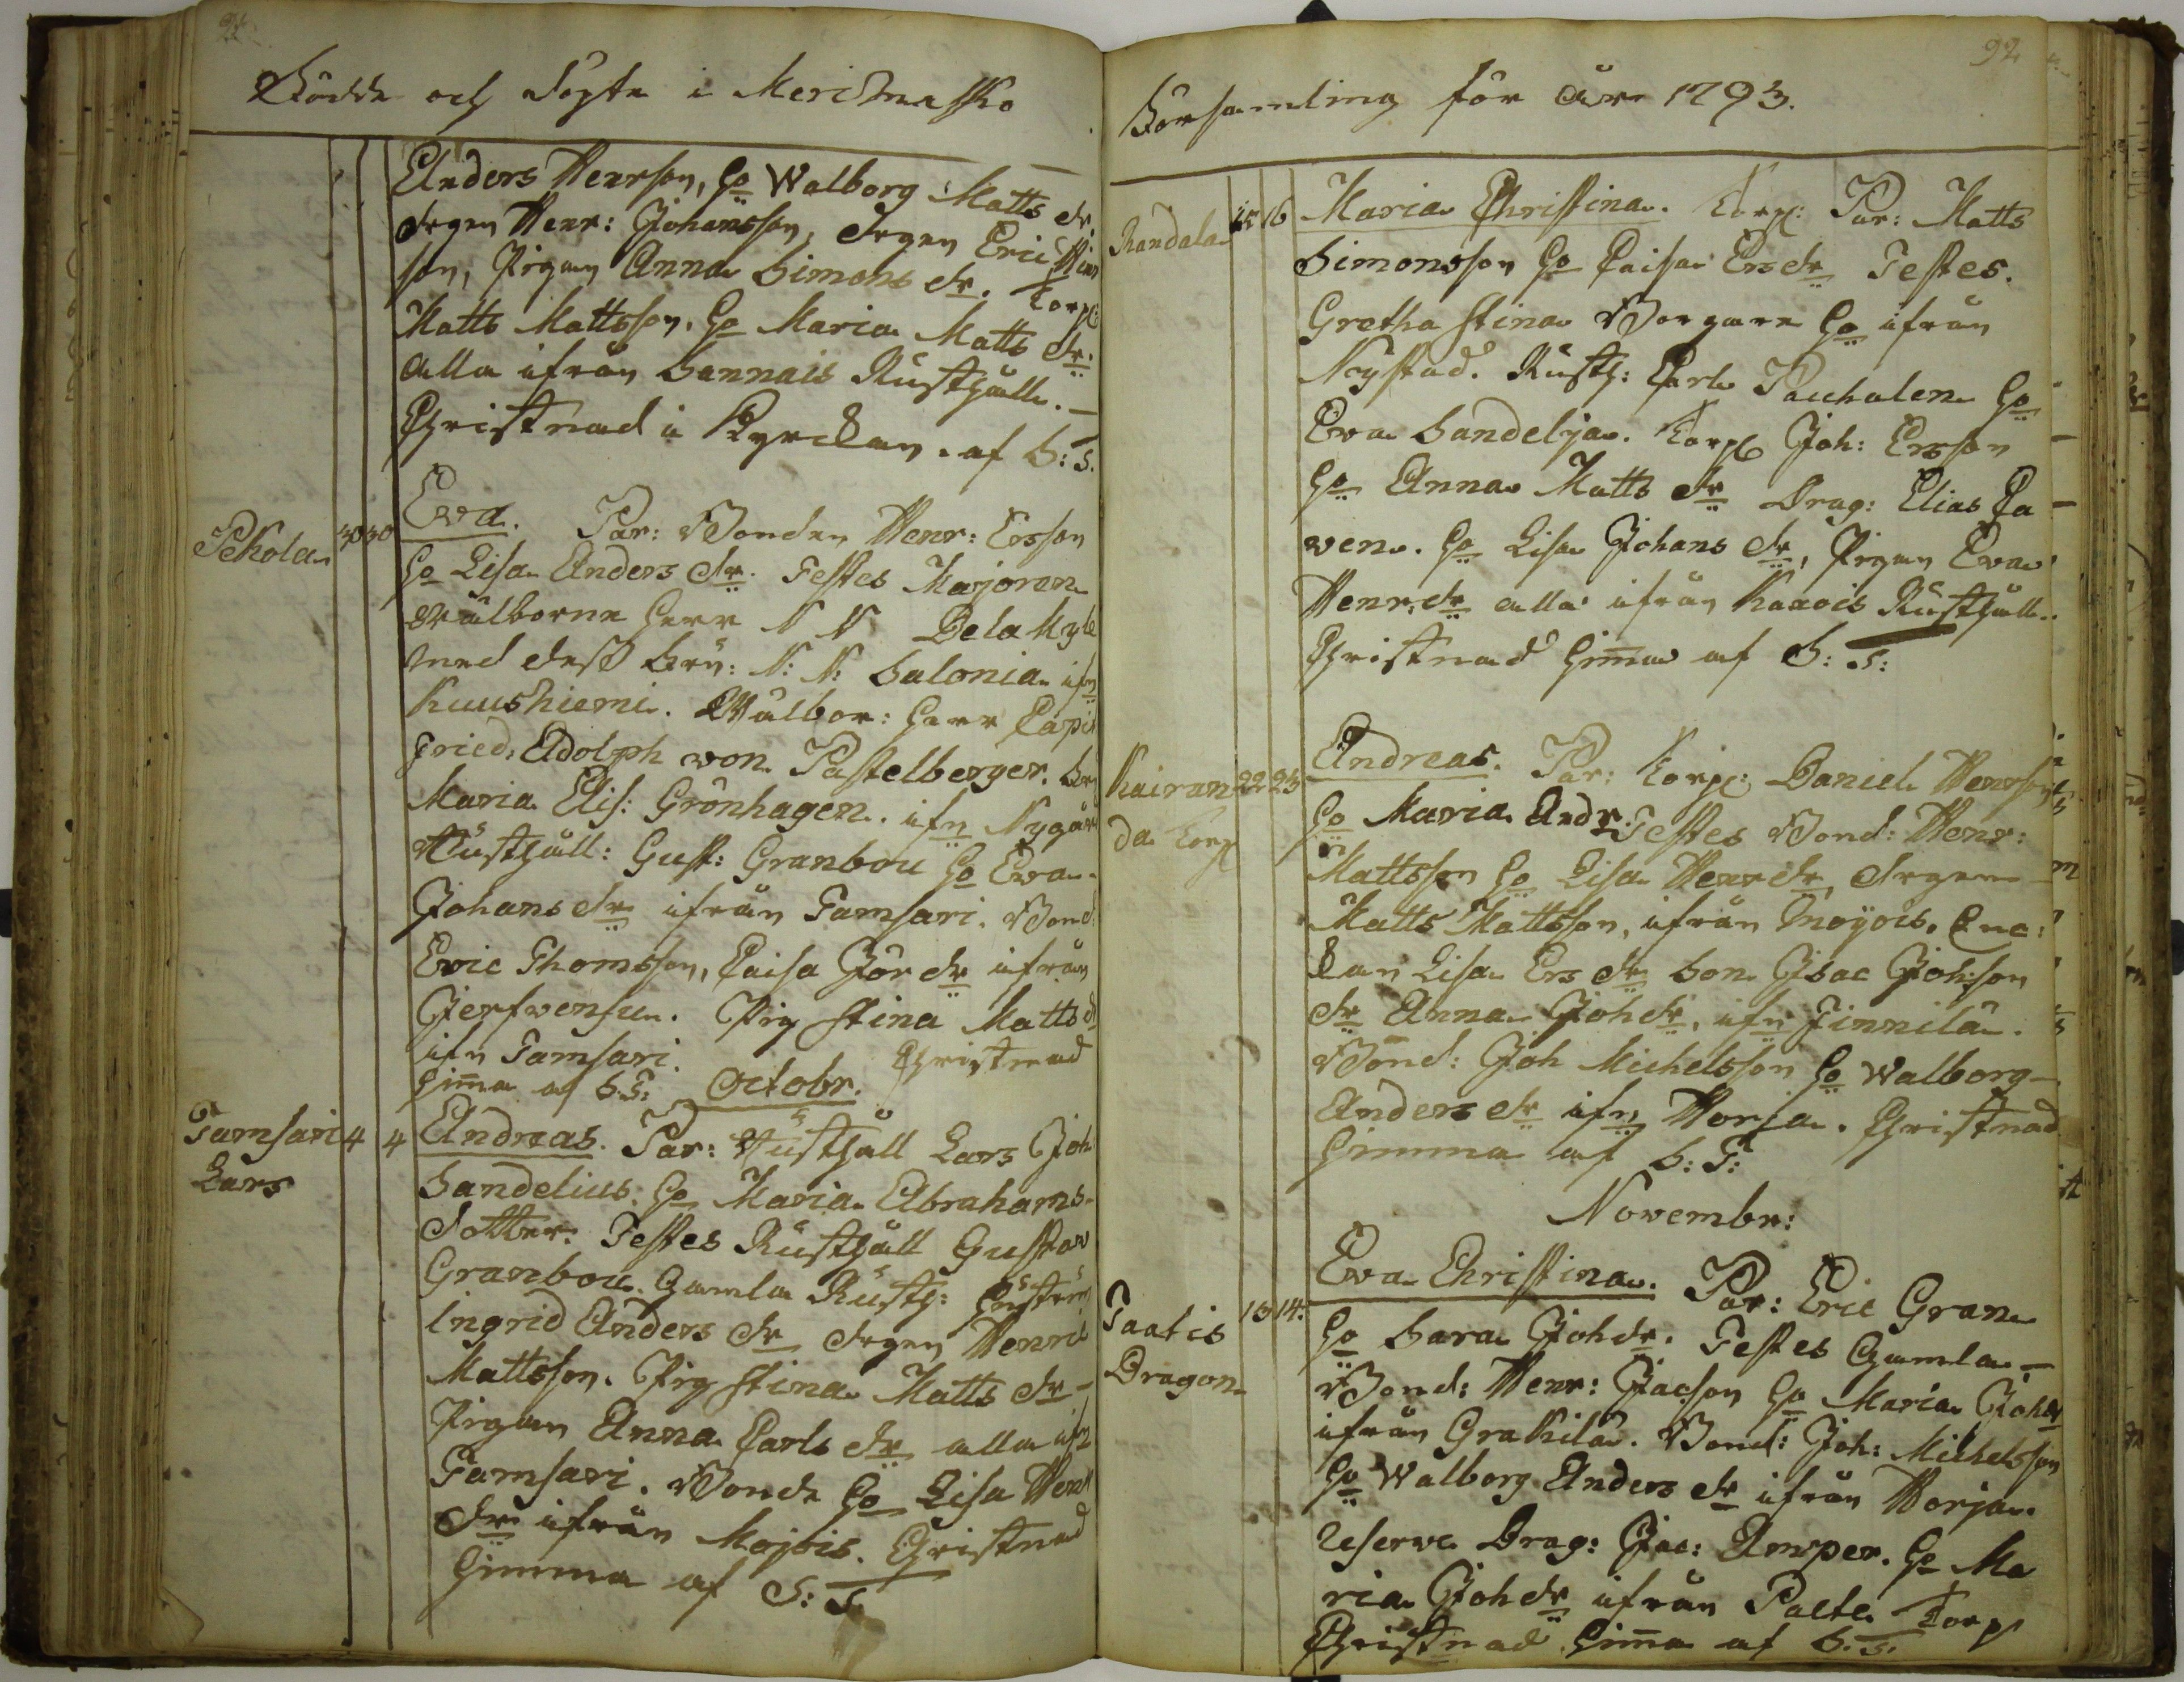 Födde och Döpte i Merimasko
Anders Henrson, Ho Walborg Matts dr.
drgen Henr: Johansson, drgen Eric
son, Pigan Anna Simons dr. Torp:
Matts Mattsson, Ho Maria Matts dr.
alla ifrån Sannais Rusthåll.
Christnad i Kyrckan. af S: T.
Pekola 30 30 Eva. Par: Bonden Henr: Ersson
Ho Lisa Anders dr. Testes Majoren
Wälborne Herr N N De la Myle
med dess Fru: N: N: Salonia ifn
Kuuskiemi. Wälbor: Herr Capit
Fried: Adolph von Pastelberger. Fru
Maria Elis: Grönhagen. ifn Nygård
Rusthåll: Gust: Granbou Ho Eva
Johans dr ifrån Tamsari. Bond:
Eric Thomsson, Caisa Jör dr ifrån
Jerfvensu. Pig Stina Matts dr
ifn Tamsari. Christnad
hima af S:T: Octobr.
Tamsari 4 4 Andreas. Par: Rusthåll Lars Joh
Lars
Sandelius. Ho Maria Abrahams-
dotter. Testes Rusthåll Gustav
Granbou. Gamla Rusth: Hustru
Ingrid Anders dr drgen Henric
Mattsson. Pig Stina Matts dr
Pigan Anna Carls dr alla ifn
Tamsari. Bonde Ho Lisa Henr
dr ifrån Mojois. Christnad
himma af S: T
92
Församling för år 1793.
Randala 15 16 Maria Christina. Torp: Par: Matts
Simonsson Ho Caisa Ers dr Testes.
Gretha Stina Borgare Ho ifrån
Nystad. Rusth: Carl Pacchalen Ho
Eva Sandelja. Torp Joh: Ersson
Ho Anna Matts dr Drag: Elias Pa
ven. Ho Lisa Johans dr, Pigan Eva
Henr. dr alla ifrån Kaavis Rusthåll.
Christnad hima af S: T:
Kairan 22 23 Andreas. Par: Torp: Daniel Henrson
da Torp
Ho Maria And dr. Testes Bond: Henr:
Mattsson Ho Lisa Henr dr drgen
Matts Mattsson, ifrån Moyois. Enc:
kan Lisa Ers dr Son Isac Johson
dr Anna Joh dr, ifn Finnilä.
Bond: Joh Michelsson Ho Walborg
Anders dr ifn Worja. Christnad
himma af S: T:
Novembr:
Taatis 13 14. Eva Christina. Par: Eric Gran
Dragon
Ho Sara Joh dr. Testes Gamla
Bond: Henr: Jacson Ho Maria Joh dr
ifrån Grakila. Bond: Joh: Michelsson
Ho Walborg Anders dr ifrån Worja.
Reserve Drag: Jac: Amper. Ho Ma
ria Joh dr ifrån Palte Torp
Christnad hima af S. T.